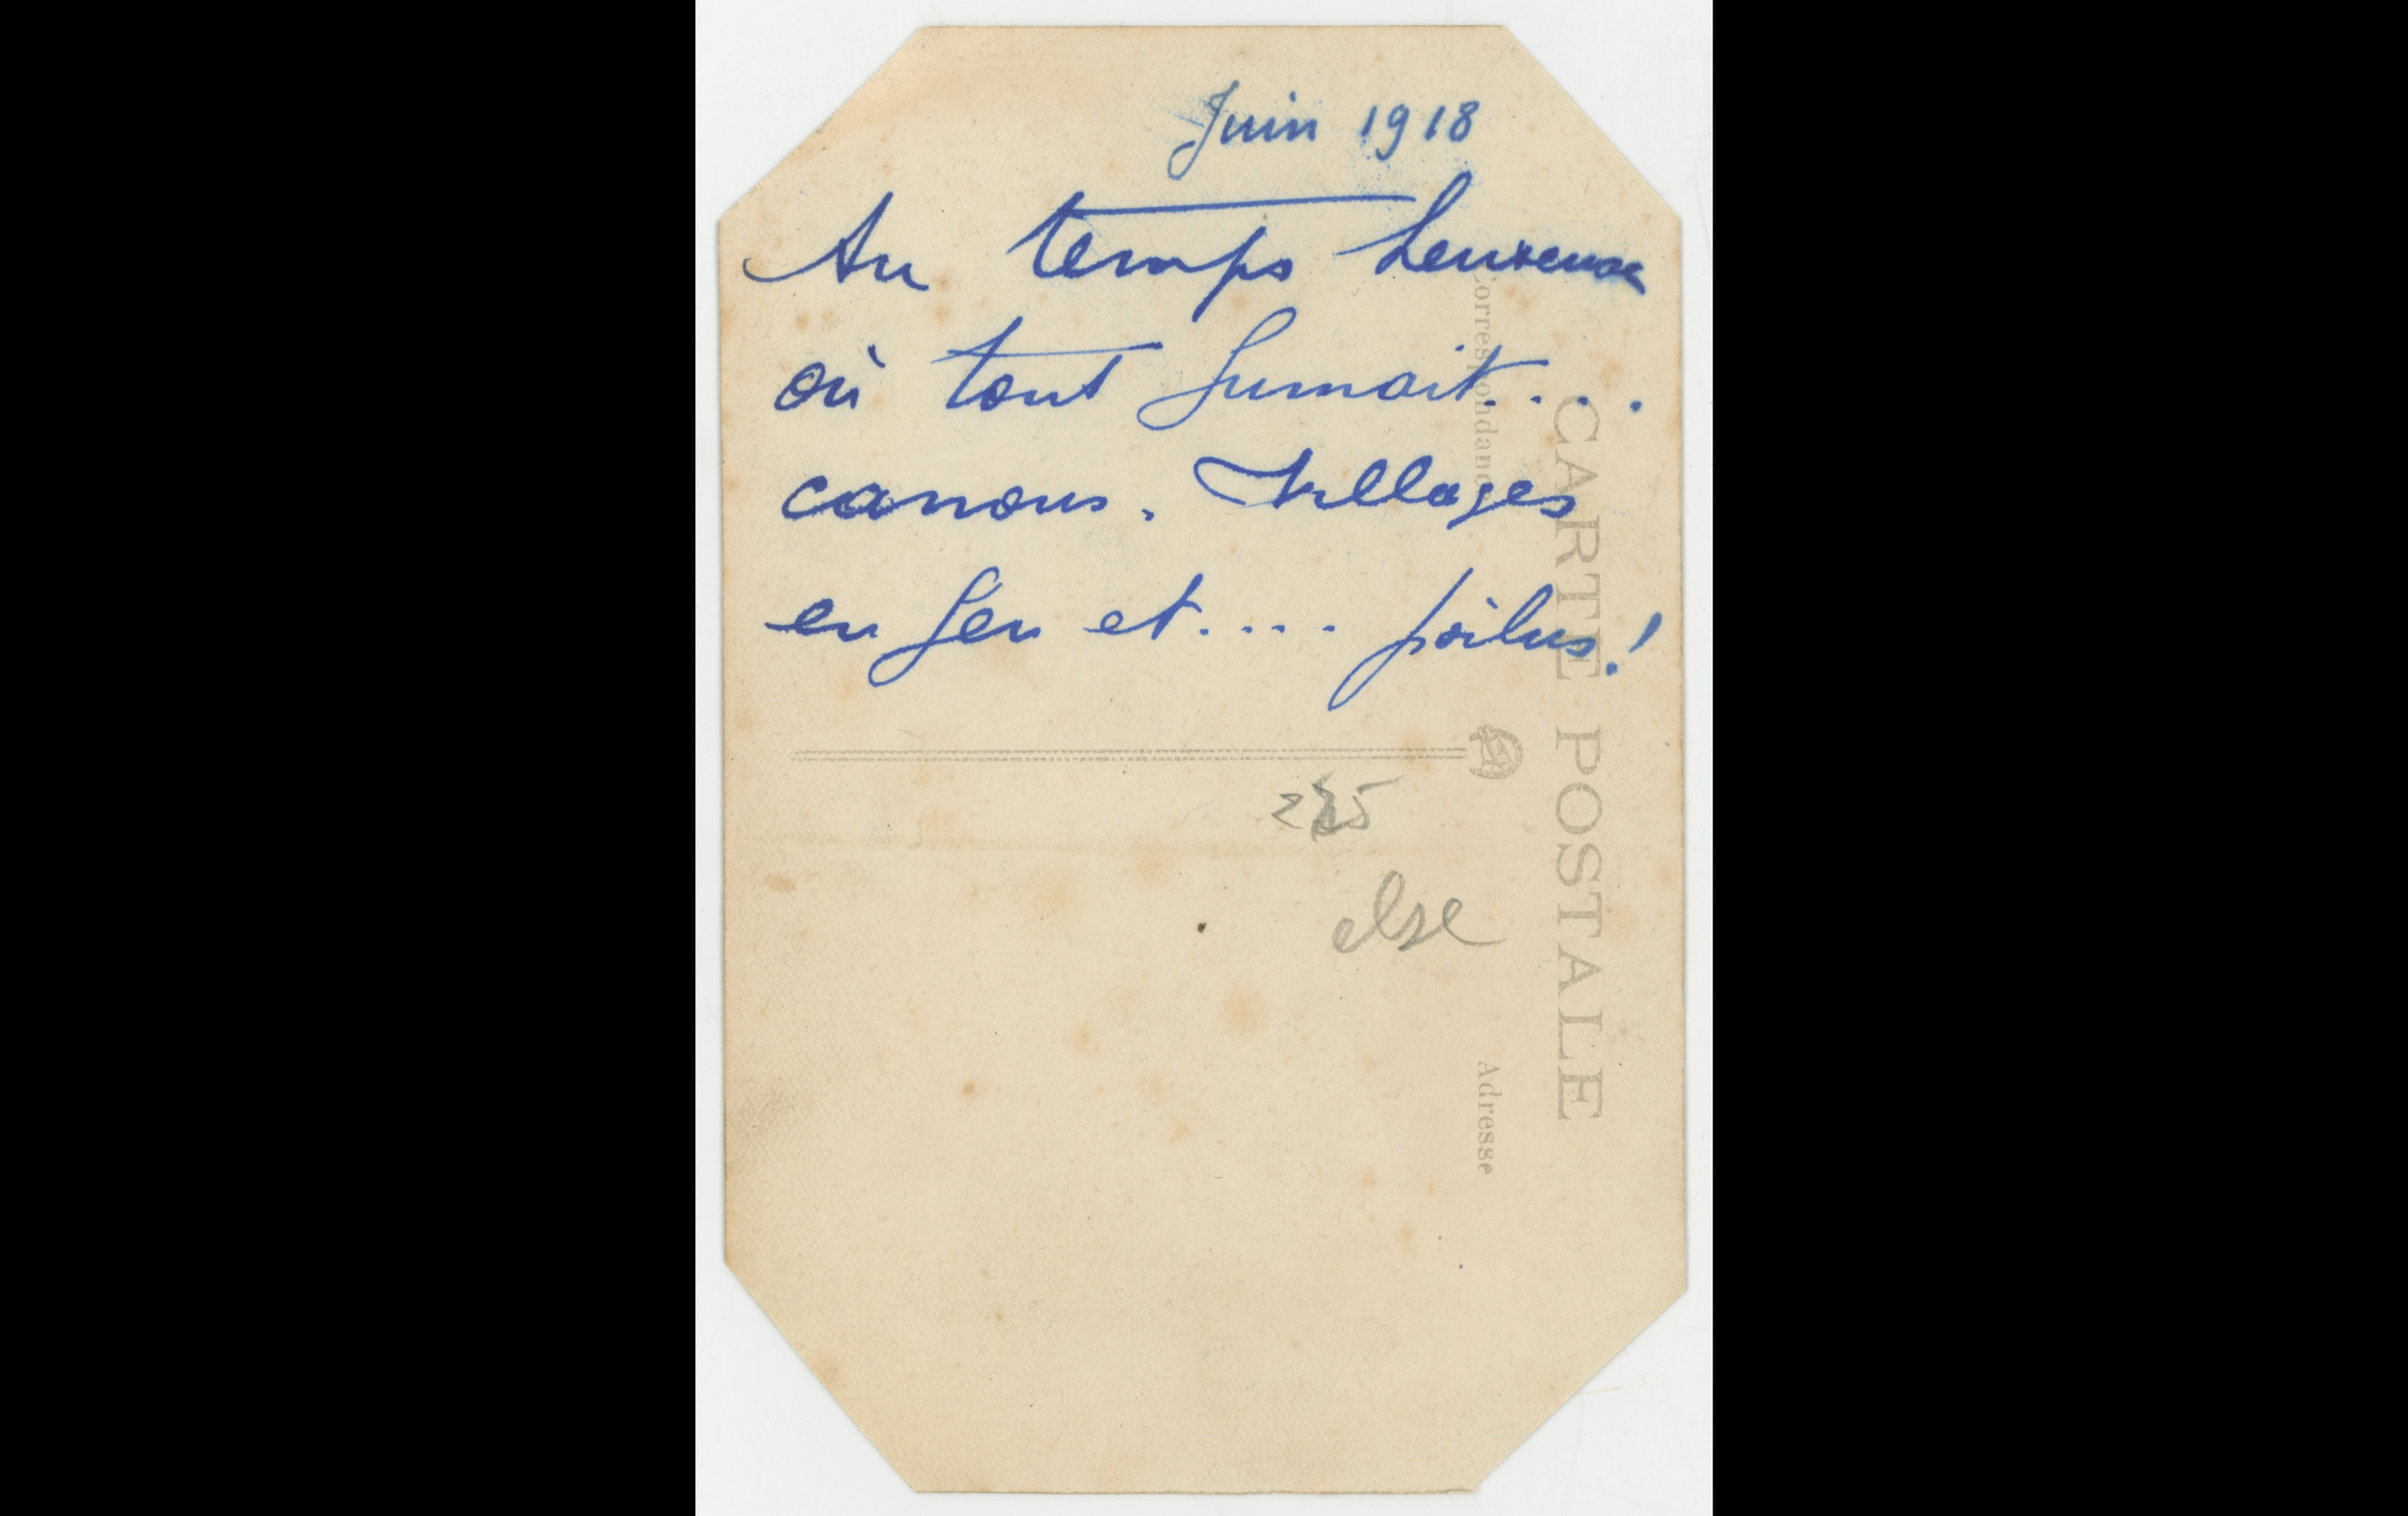 Juin 1918
Au temps heureux
où tout fumait....
canons. Villages
en feu et.... poilus!
CARTE POSTALE
Correspondance
Adresse
else